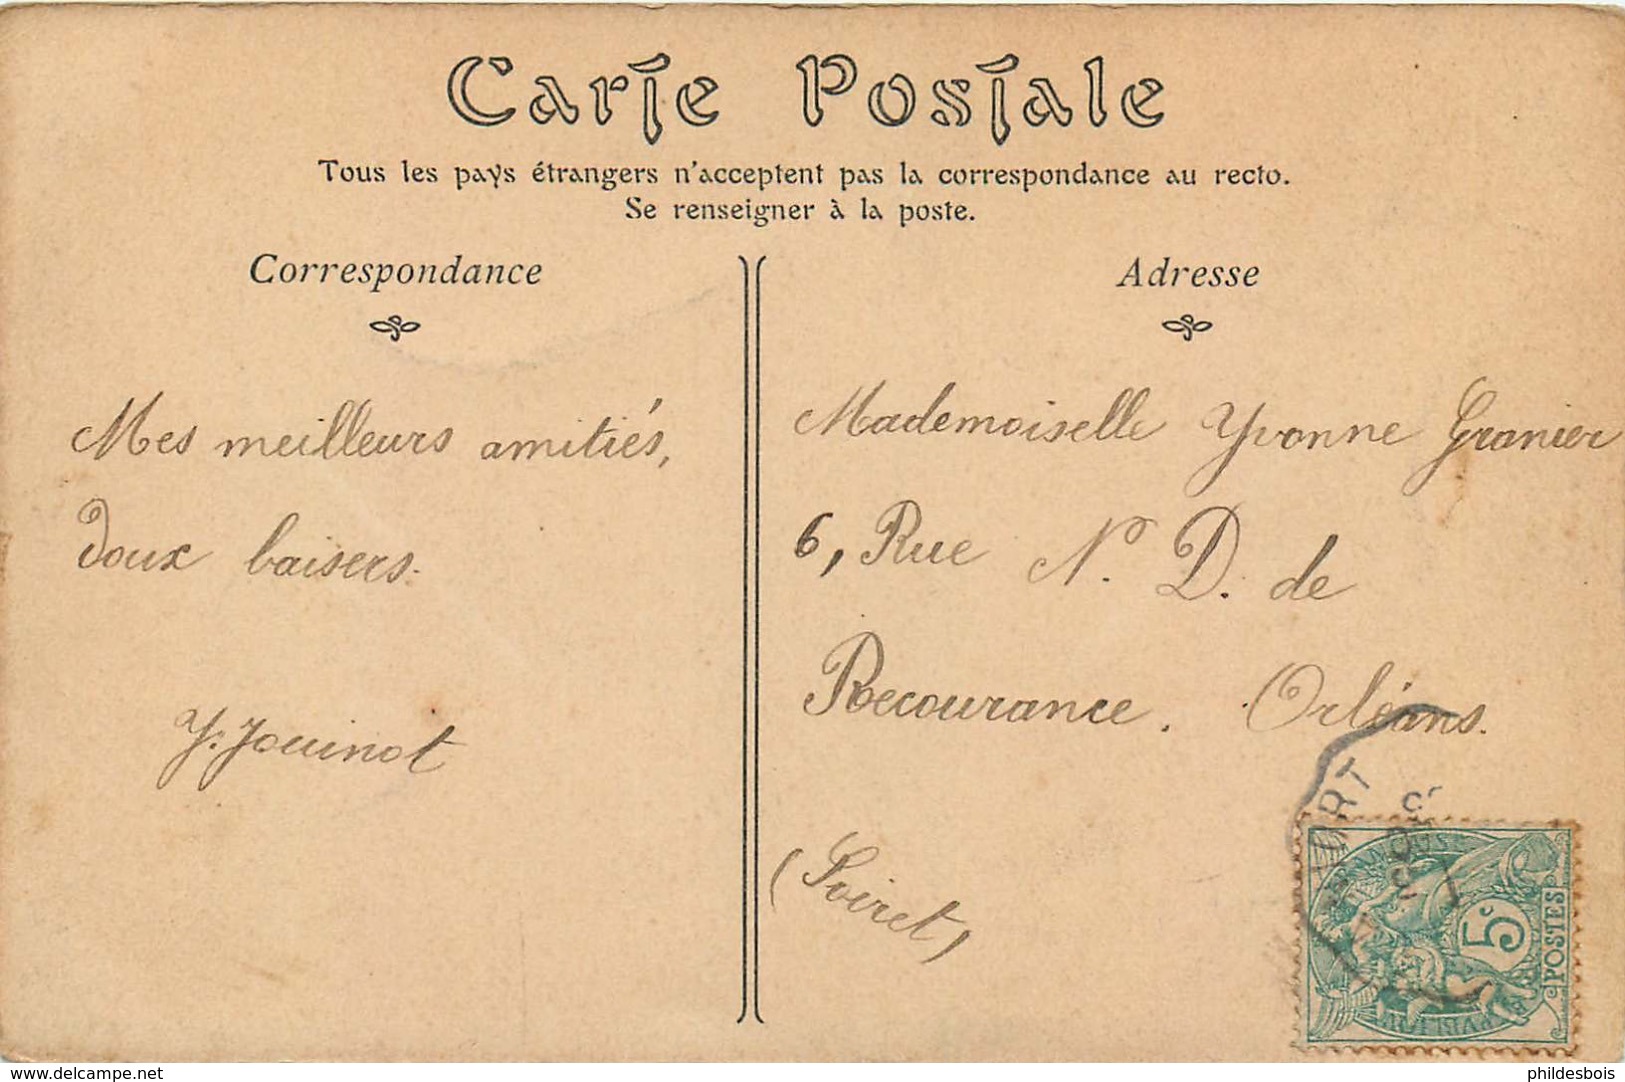 Carte Postale
Tous les pays étrangers n'acceptent pas la correspondance au recto.
Se renseigner à la poste.
Correspondance
Mes meilleurs amitiés,
doux baisers.
Y. Jouinot
Adresse
Mademoiselle Yvonne Granier
6, Rue N. D. de
Recouvrance. Orléans.
(Loiret)
5c
POSTES
delcampe.net
phildesbois